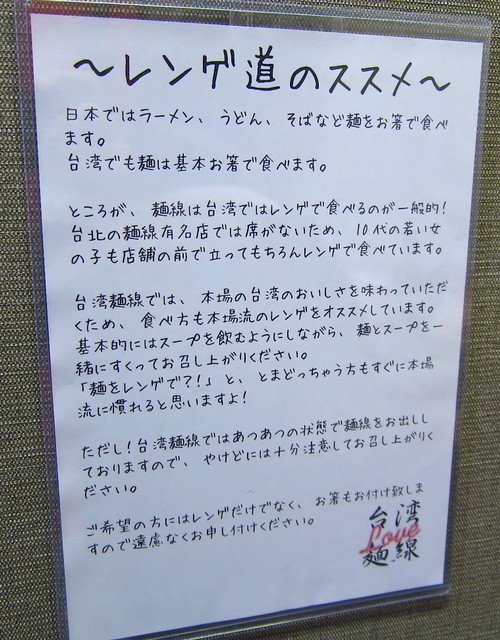 ～レンゲ道のススメ～
日本ではラーメン、うどん、そばなど麺をお箸で食べ
ます。
台湾でも麺は基本お箸で食べます。
ところが、麺線は台湾ではレンゲで食べるのが一般的!
台北の麺線有名店では席がないため、10代の若い女
の子も店舗の前で立ってもちろんレンゲで食べています。
台湾麺線では、本場の台湾のおいしさを味わっていただ
くため、食べ方も本場流のレンゲをオススメしています。
基本的にはスープを飲むようにしながら、麺とスープを一
緒にすくってお召し上がりください。
「麺をレンゲで?!」と、とまどっちゃう方もすぐに本場
流に慣れると思いますよ!
ただし!台湾麺線ではあつあつの状態で麺線をお出しし
ておりますので、やけどには十分注意してお召し上がりく
ださい。
ご希望の方にはレンゲだけでなく、お箸もお付け致しま
すので遠慮なくお申し付けください。
台湾
Love
麺線